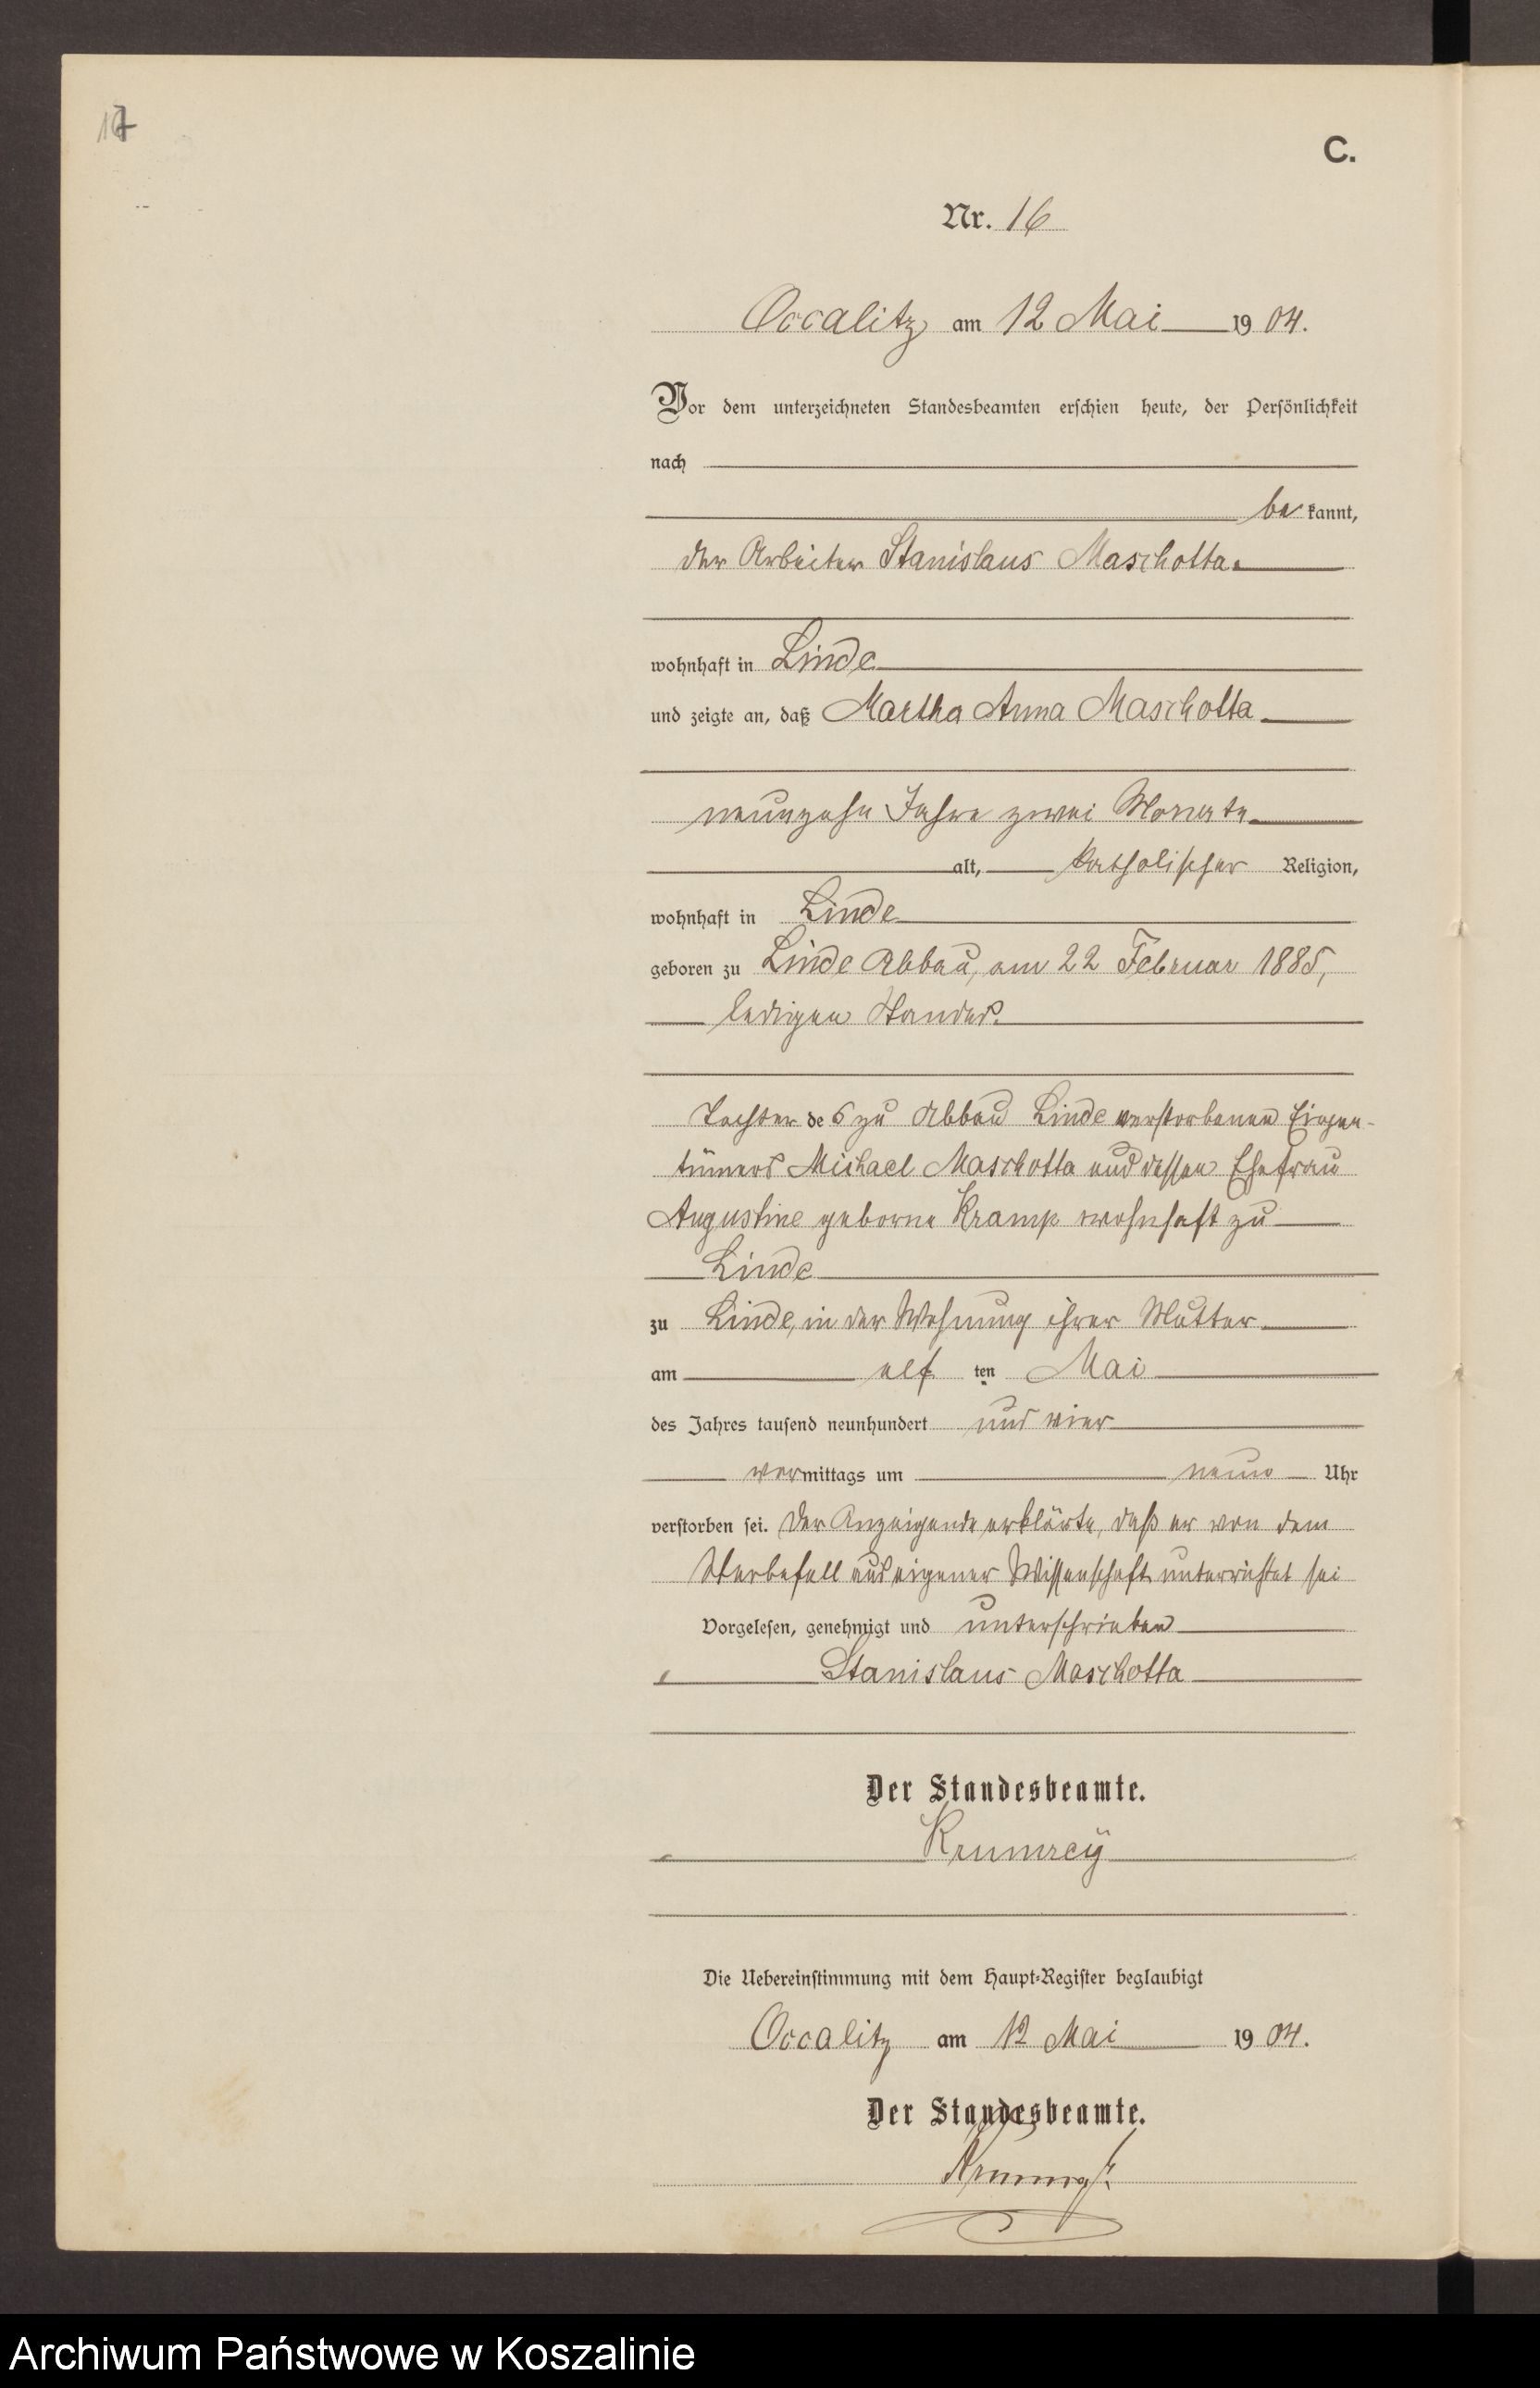 17
C.
Nr. 16
Occalitz am 12 Mai 1904.
Vor dem unterzeichneten Standesbeamten erschien heute, der Persönlichkeit
nach
be kannt,
der Arbeiter Stanislaus Maschotta
wohnhaft in Linde
und zeigte an, daß Martha Anna Maschotta
neunzehn Jahre zwei Monate
alt, katholischer Religion,
wohnhaft in Linde
geboren zu Linde Abbau, am 22 Februar 1885,
ledigen Standes.
Tochter des zu Abbau Linde verstorbenen Eigen-
tümers Michael Maschotta und dessen Ehefrau
Augustine geborne Kramp wohnhaft zu
Linde
zu Linde, in der Wohnung ihrer Mutter
am elf ten Mai
des Jahres tausend neunhundert und vier
vormittags um neun Uhr
verstorben sei. Der Anzeigende erklärte, daß er von dem
Sterbefall aus eigener Wissenschaft unterrichtet sei
Vorgelesen, genehmigt und unterschrieben
Stanislaus Maschotta
Der Standesbeamte.
Krumreÿ
Die Uebereinstimmung mit dem Haupt-Register beglaubigt
Occalitz am 12 Mai 1904.
Der Standesbeamte.
Archiwum Państwowe w Koszalinie